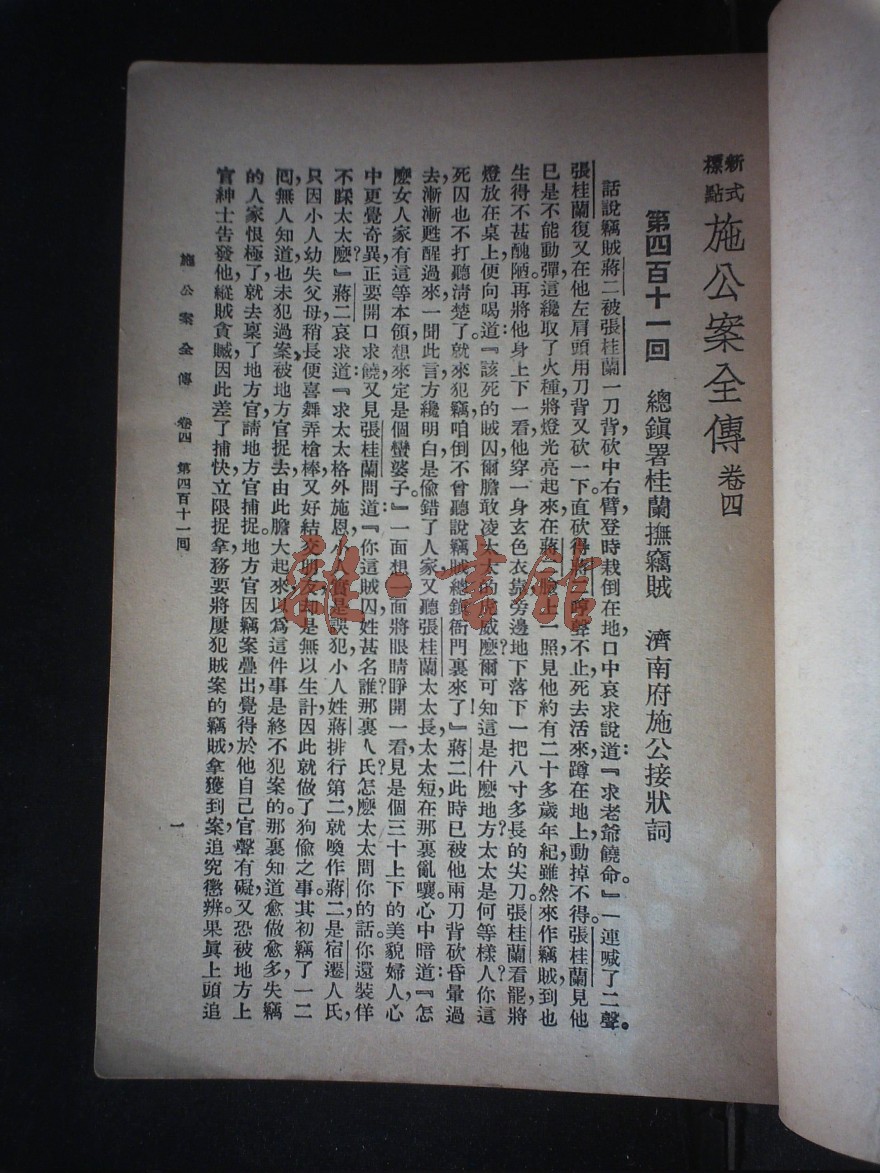 新式標點 施公案全傳 卷四
第四百十一回 總鎮署桂蘭撫竊賊 濟南府施公接狀詞
話說竊賊蔣二被張桂蘭一刀背砍中右臂，登時栽倒在地，口中哀求說道：『求老爺饒命。』一連喊了二聲。
張桂蘭復又在他左肩頭用刀背又砍一下，直砍得蔣二哼聲不止，死去活來，蹲在地上，動掉不得。張桂蘭見他
已是不能動彈，這纔取了火種，將燈光亮起來，在蔣二臉上一照，見他約有二十多歲年紀，雖然來作竊賊，到也
生得不甚醜陋。再將他身上下一看，他穿一身玄色衣靠，旁邊地下落下一把八寸多長的尖刀。張桂蘭看罷，將
燈放在桌上，便向喝道：『該死的賊囚，爾膽敢凌太太的虎威麼？爾可知這是什麼地方？太太是何等樣人？你這
死囚也不打聽清楚了，就來犯竊，咱倒不曾聽說竊賊總鎮衙門裏來了！』蔣二此時已被他兩刀背砍昏暈過
去，漸漸甦醒過來，一聞此言，方纔明白是偷錯了人家，又聽張桂蘭太太長，太太短，在那裏亂嚷。心中暗道：『怎
麼女人家有這等本領，想來定是個蠻婆子。』一面想，一面將眼睛睜開一看，見是個三十上下的美貌婦人，心
中更覺奇異，正要開口求饒，又見張桂蘭問道：『你這賊囚，姓甚名誰？那裏人氏？怎麼太太問你的話，你還裝佯
不睬太太麼？』蔣二哀求道：『求太太格外施恩，小人實是誤犯，小人姓蔣，排行第二，就喚作蔣二，是宿遷人氏，
只因小人幼失父母，稍長便喜舞弄槍棒，又好結交朋友，却是無以生計，因此就做了狗偷之事。其初竊了一二
回，無人知道，也未犯過案，被地方官捉去，由此膽大起來，以爲這件事是終不犯案的。那裏知道愈做愈多，失竊
的人家恨極了，就去稟了地方官，請地方官捕捉。地方官因竊案疊出，覺得於他自己官聲有礙，又恐被地方上
官紳士告發他縱賊貪贓，因此差了捕快，立限捉拿，務要將屢犯賊案的竊賊拿獲到案，追究懲辨。果眞上頭追
施公案全傳 卷四 第四百十一回 一
雜·書館